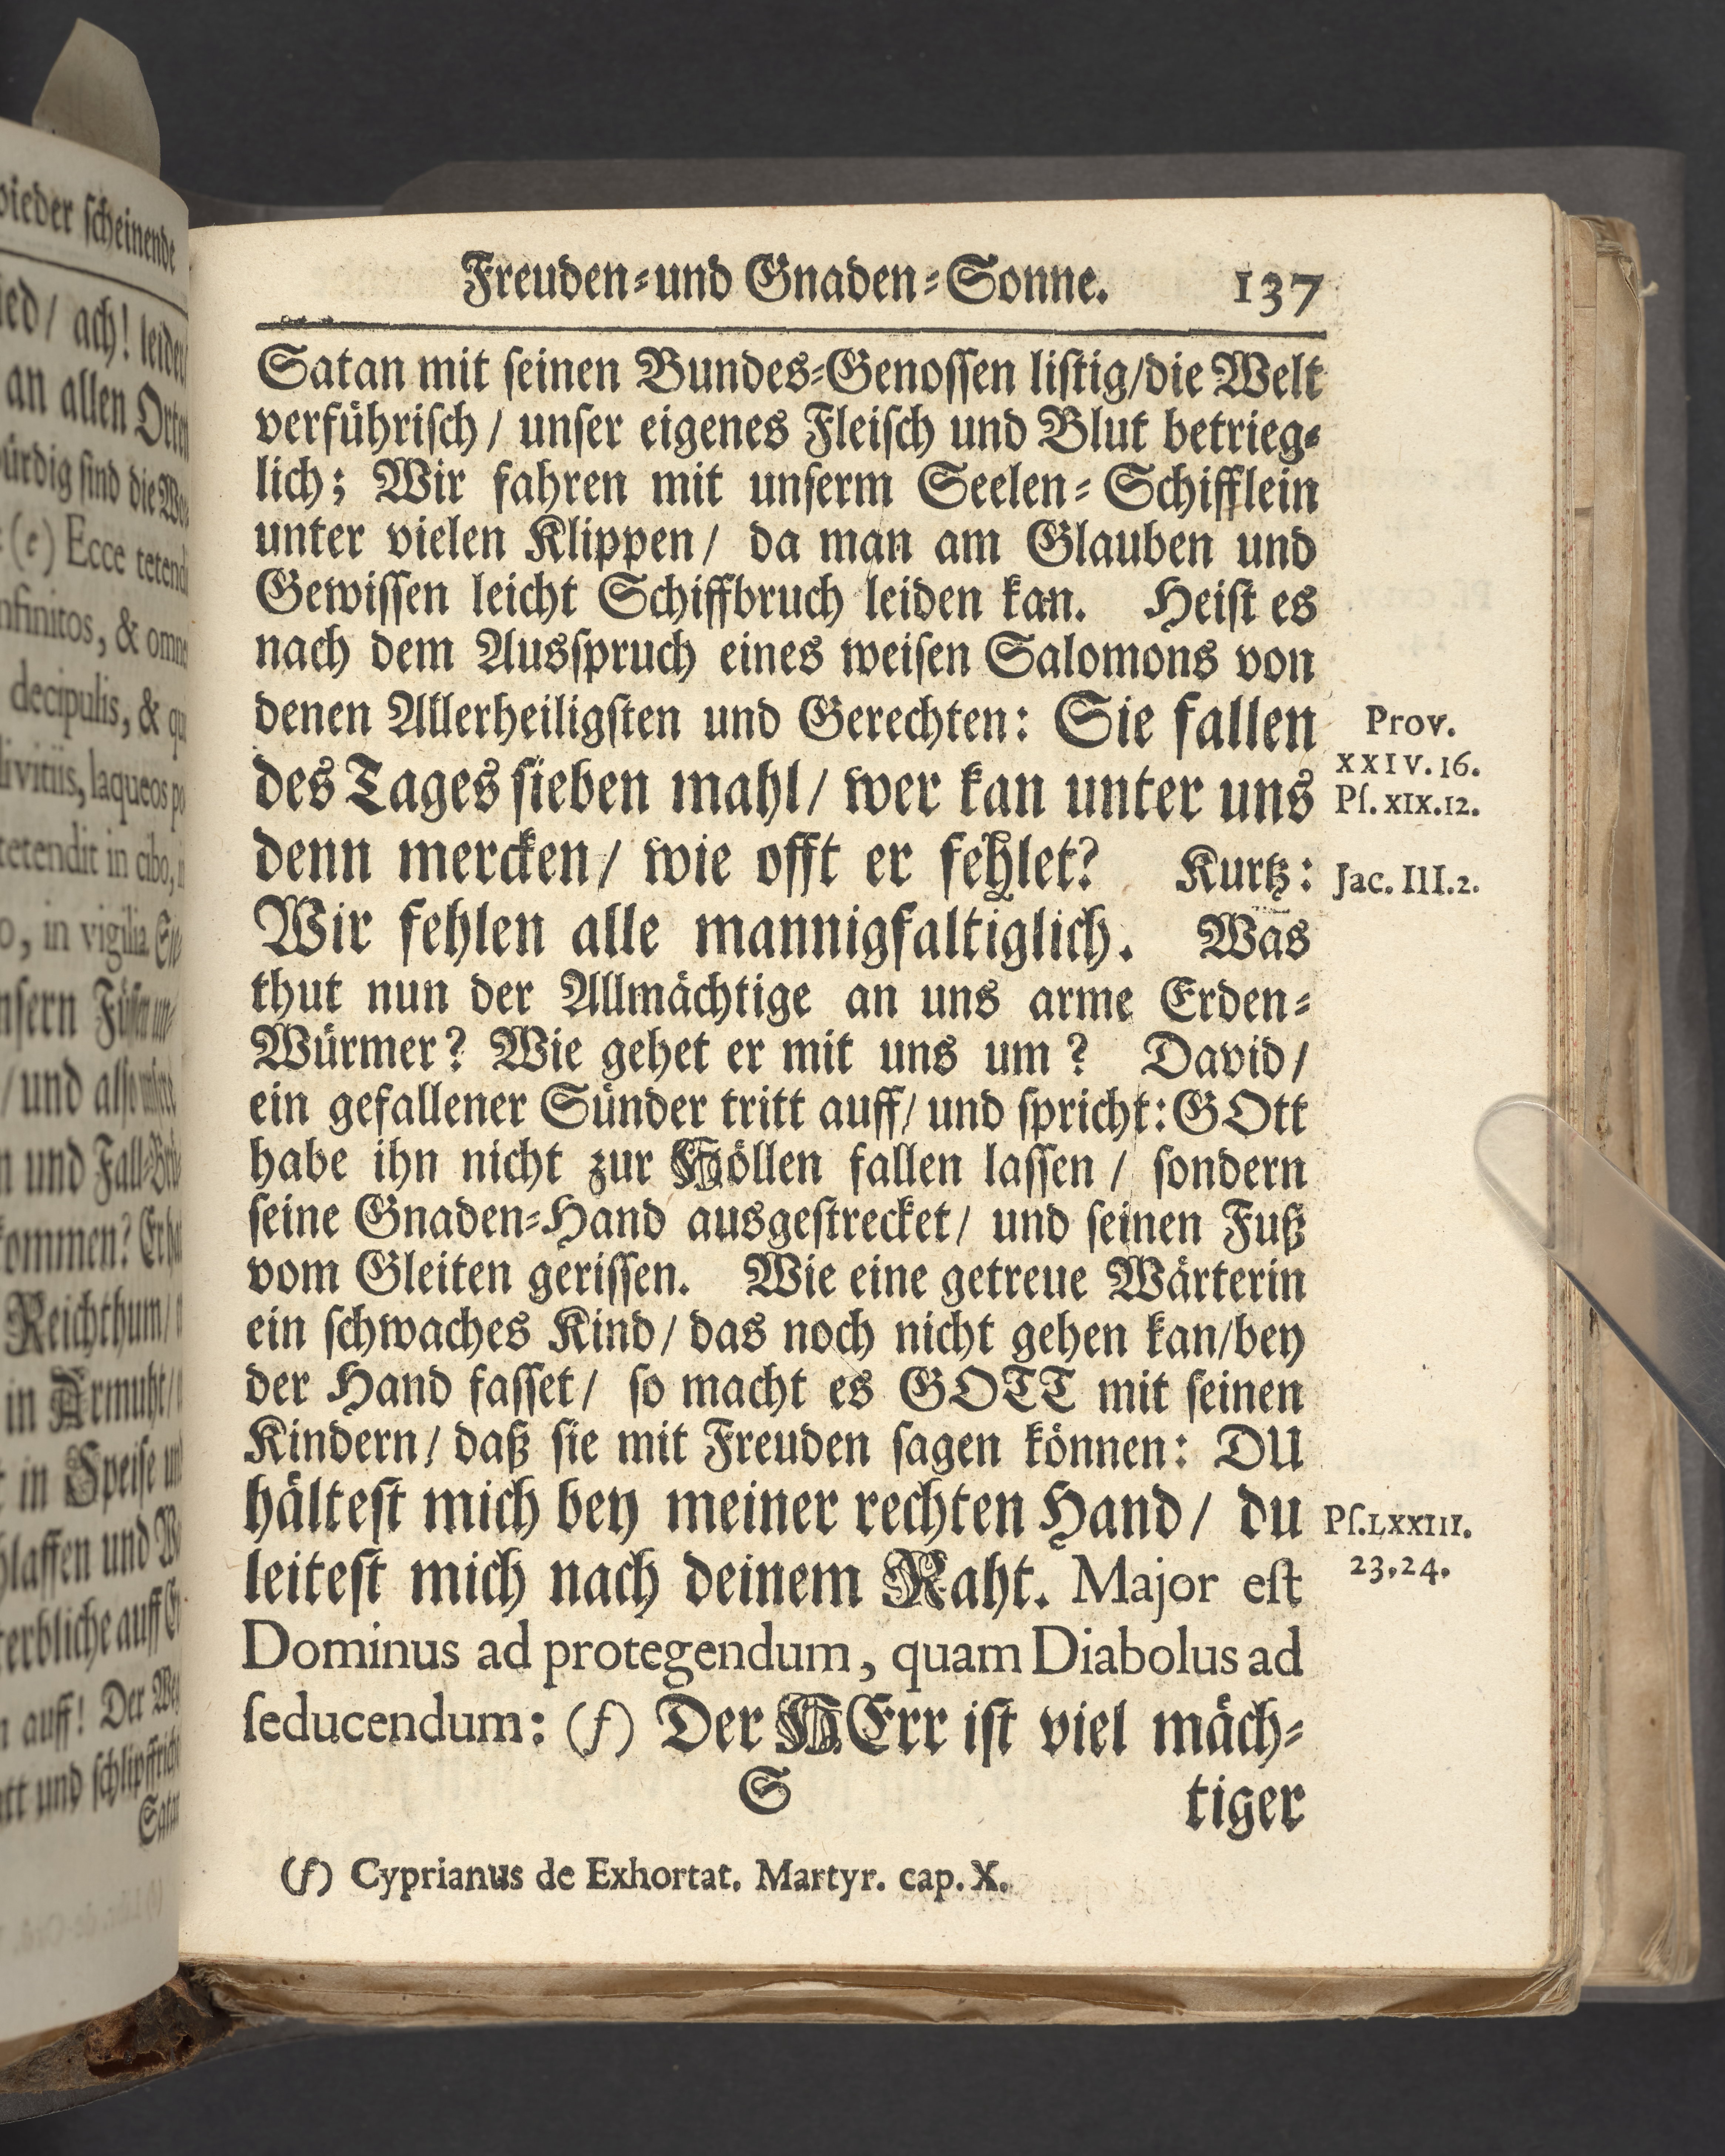 vieder ſcheinende
ied/ ach! leider
an allen Orten
ürdig ſind die
(e) Ecce tetendi
nfinitos, & omne
decipulis, & qu
divitiis, laqueos po
tetendit in cibo,
o, in vigilia.
nſern
/ und alſo
n und Fall-
kommen?
Reichthum/
in Armuht/
t in Speiſe und
hlaffen und
terbliche auff
n auff! Der
att und
Satan
Freuden-und Gnaden-Sonne. 137
Satan mit ſeinen Bundes-Genoſſen liſtig/die Welt
verführiſch/ unſer eigenes Fleiſch und Blut betrieg-
lich; Wir fahren mit unſerm Seelen-Schifflein
unter vielen Klippen/ da man am Glauben und
Gewiſſen leicht Schiffbruch leiden kan. Heiſt es
nach dem Ausſpruch eines weiſen Salomons von
denen Allerheiligſten und Gerechten: Sie fallen
des Tages ſieben mahl/ wer kan unter uns
denn mercken/ wie offt er fehlet? Kurtz:
Wir fehlen alle mannigfaltiglich. Was
thut nun der Allmächtige an uns arme Erden-
Würmer? Wie gehet er mit uns um? David/
ein gefallener Sünder tritt auff/ und ſpricht: GOtt
habe ihn nicht zur Höllen fallen laſſen/ ſondern
ſeine Gnaden-Hand ausgeſtrecket/ und ſeinen Fuß
vom Gleiten geriſſen. Wie eine getreue Wärterin
ein ſchwaches Kind/ das noch nicht gehen kan/bey
der Hand faſſet/ ſo macht es GOTT mit ſeinen
Kindern/ daß ſie mit Freuden ſagen können: DU
hälteſt mich bey meiner rechten Hand/ du
leiteſt mich nach deinem Raht. Major eſt
Dominus ad protegendum, quam Diabolus ad
ſeducendum: (f) Der HErr iſt viel mäch-
S tiger
Prov.
XXIV.16.
Pſ.XIX.12.
Jac. III.2.
Pſ.LXXIII.
23.24.
(f) Cyprianus de Exhortat. Martyr. cap. X.